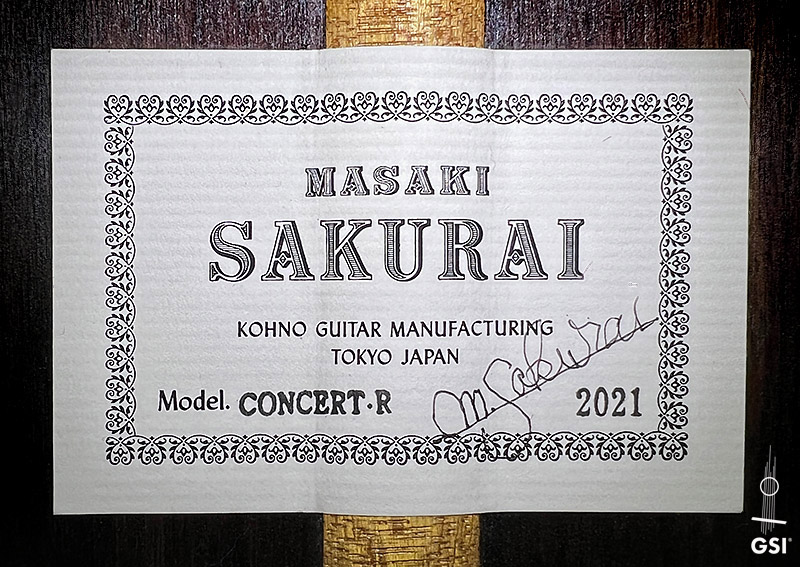 MASAKI
SAKURAI
KOHNO GUITAR MANUFACTURING
TOKYO JAPAN
Model. CONCERT·R
M. Sakurai
2021
GSI®